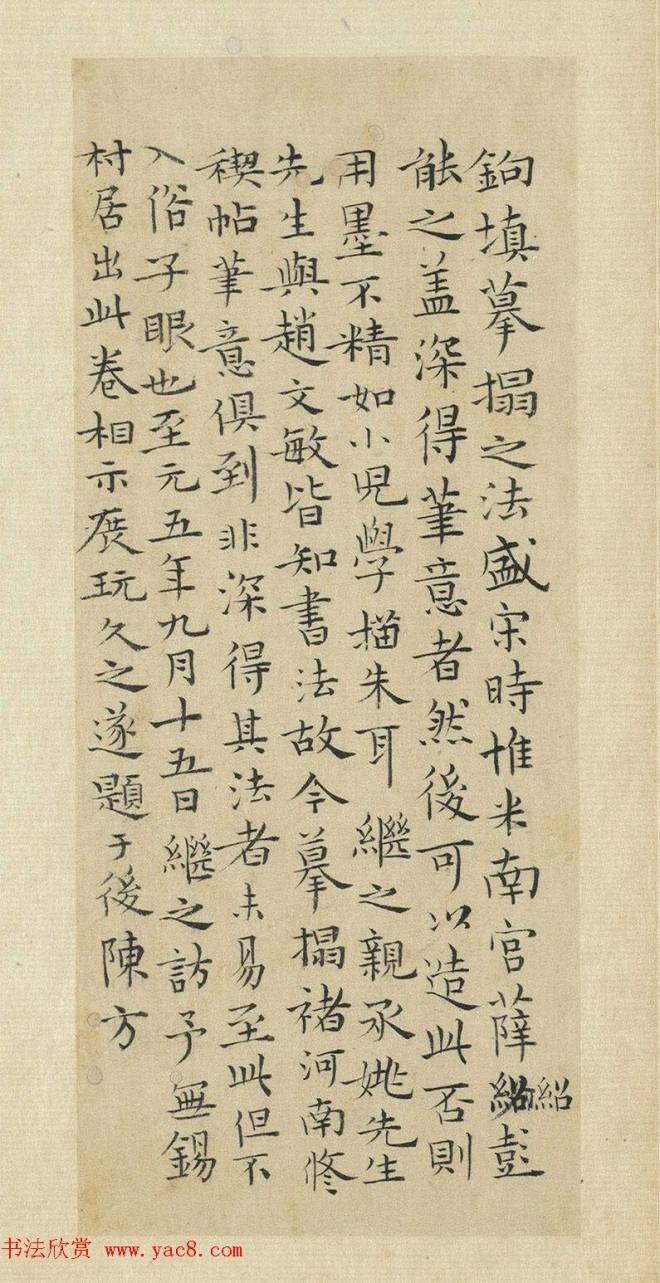 鉤填摹搨之法盛宋時惟米南宮薛紹彭
紹
能之盖深得筆意者然後可以造此否則
用墨不精如小児學描朱耳繼之親承姚先生
先生與趙文敏皆知書法故今摹搨褚河南修
禊帖筆意俱到非深得其法者未易至此但不
入俗子眼也至元五年九月十五日繼之訪予無錫
村居出此卷相示展玩久之遂題于後陳方
书法欣赏 www.yac8.com